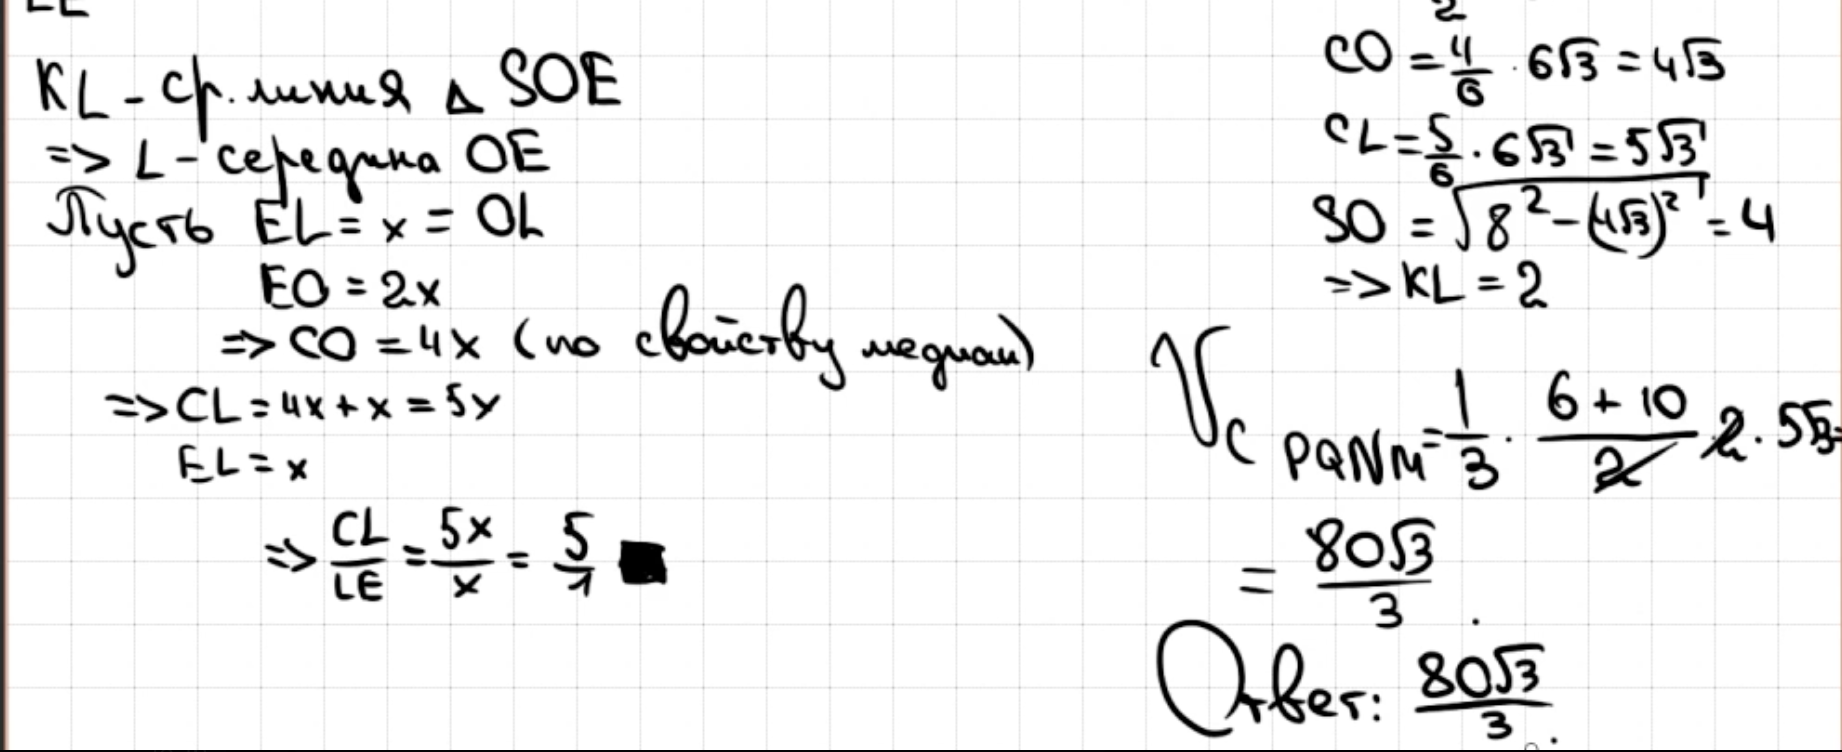 LE
KL - ср. линия △ SOE
=> L - середина OE
Пусть EL = x = OL
EO = 2x
=> CO = 4x (по свойству медиан)
=> CL = 4x + x = 5x
EL = x
=> CL/LE = 5x/x = 5/1
2
CO = 4/6 · 6√3 = 4√3
CL = 5/6 · 6√3 = 5√3
SO = √(8² - (4√3)²) = 4
=> KL = 2
V_CPQNM = 1/3 · (6 + 10)/2 · 2 · 5√3 =
= 80√3/3 .
Ответ: 80√3/3 .